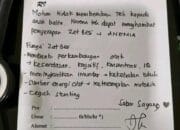 Mohon tidak memberikan Teh kepada
anak balita karena teh dapat menghambat
penyerapan zat besi → ANEMIA
Fungsi Zat Besi
- Membantu perkembangan otak
↳ kecerdasan, kognitif, konsentrasi, IQ
- Meningkatkan imunitas → kekebalan tubuh
- Sumber energi otot → keterampilan motorik
- Cegah stunting
Salam Sayang
Pro
Umur